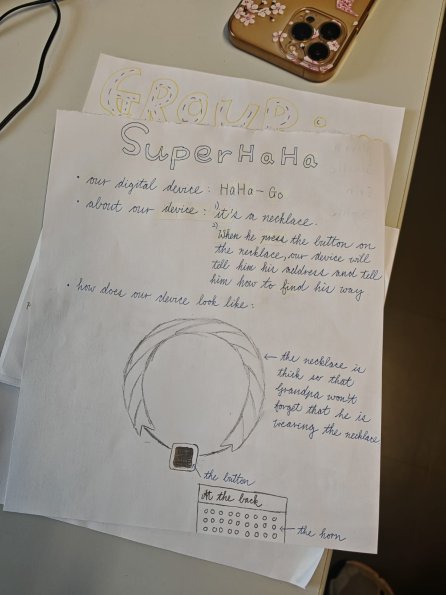 GROUP:
SuperHaHa
• our digital device: HaHa-Go
• about our device: 1) it's a necklace.
2) When he press the button on
the necklace, our device will
tell him his address and tell
him how to find his way
• how does our device look like:
← the necklace is
thick so that
Grandpa won't
forget that he is
wearing the necklace
the button
At the back
← the horn